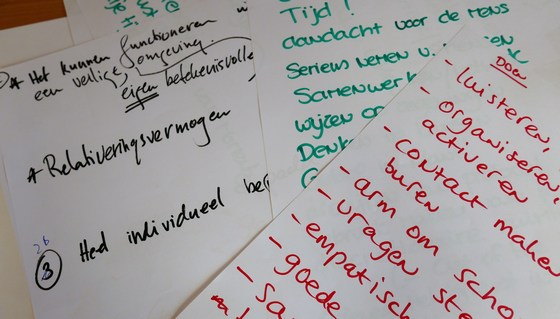 * Het kunnen functioneren
een veilige omgeving
eigen betekenisvolle
* Relativeringsvermogen
26
3 Hed individueel
Tijd!
aandacht voor de mens
Serieus nemen
Samenwerk
wijzen op
Denk
Doen
- luisteren,
- organiseren,
activeren
- contact maken
buren
- arm om scho
- vragen ste
- empatisch
- goede